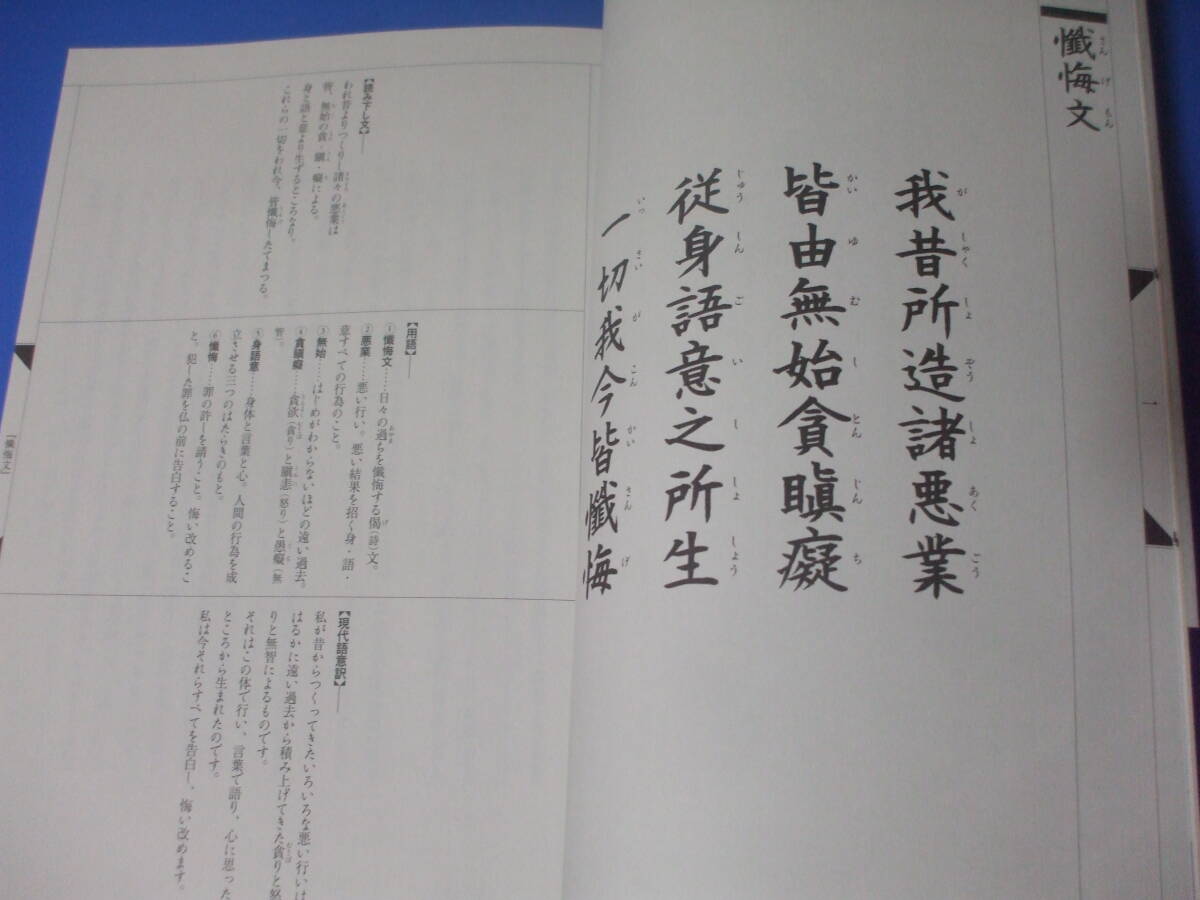 懺悔文
さんげもん
一
我昔所造諸悪業
がしゃくしょぞうしょあくごう
皆由無始貪瞋癡
かいゆむしとんじんち
従身語意之所生
じゅうしんごいししょしょう
一切我今皆懺悔
いっさいがこんかいさんげ
【読み下し文】
われ昔よりつくりし諸々の悪業は
皆、無始の貪・瞋・癡による。
身と語と意より生ずるところなり。
これらの一切をわれ今、皆懺悔したてまつる。
【用語】
①懺悔文……日々の過ちを懺悔する偈(詩)文。
②悪業……悪い行い。悪い結果を招く身・語・
意すべての行為のこと。
③無始……はじめがわからないほどの遠い過去。
④貪瞋癡……貪欲(貪り)と瞋恚(怒り)と愚癡(無
智)。
⑤身語意……身体と言葉と心。人間の行為を成
立させる三つのはたらきのもと。
⑥懺悔……罪の許しを請うこと。悔い改めるこ
と。犯した罪を仏の前に告白すること。
【現代語意訳】
私が昔からつくってきたいろいろな悪い行いは
はるかに遠い過去から積み上げてきた貪りと怒
りと無智によるものです。
それはこの体で行い、言葉で語り、心に思った
ところから生まれたのです。
私は今それらすべてを告白し、悔い改めます。
『懺悔文』